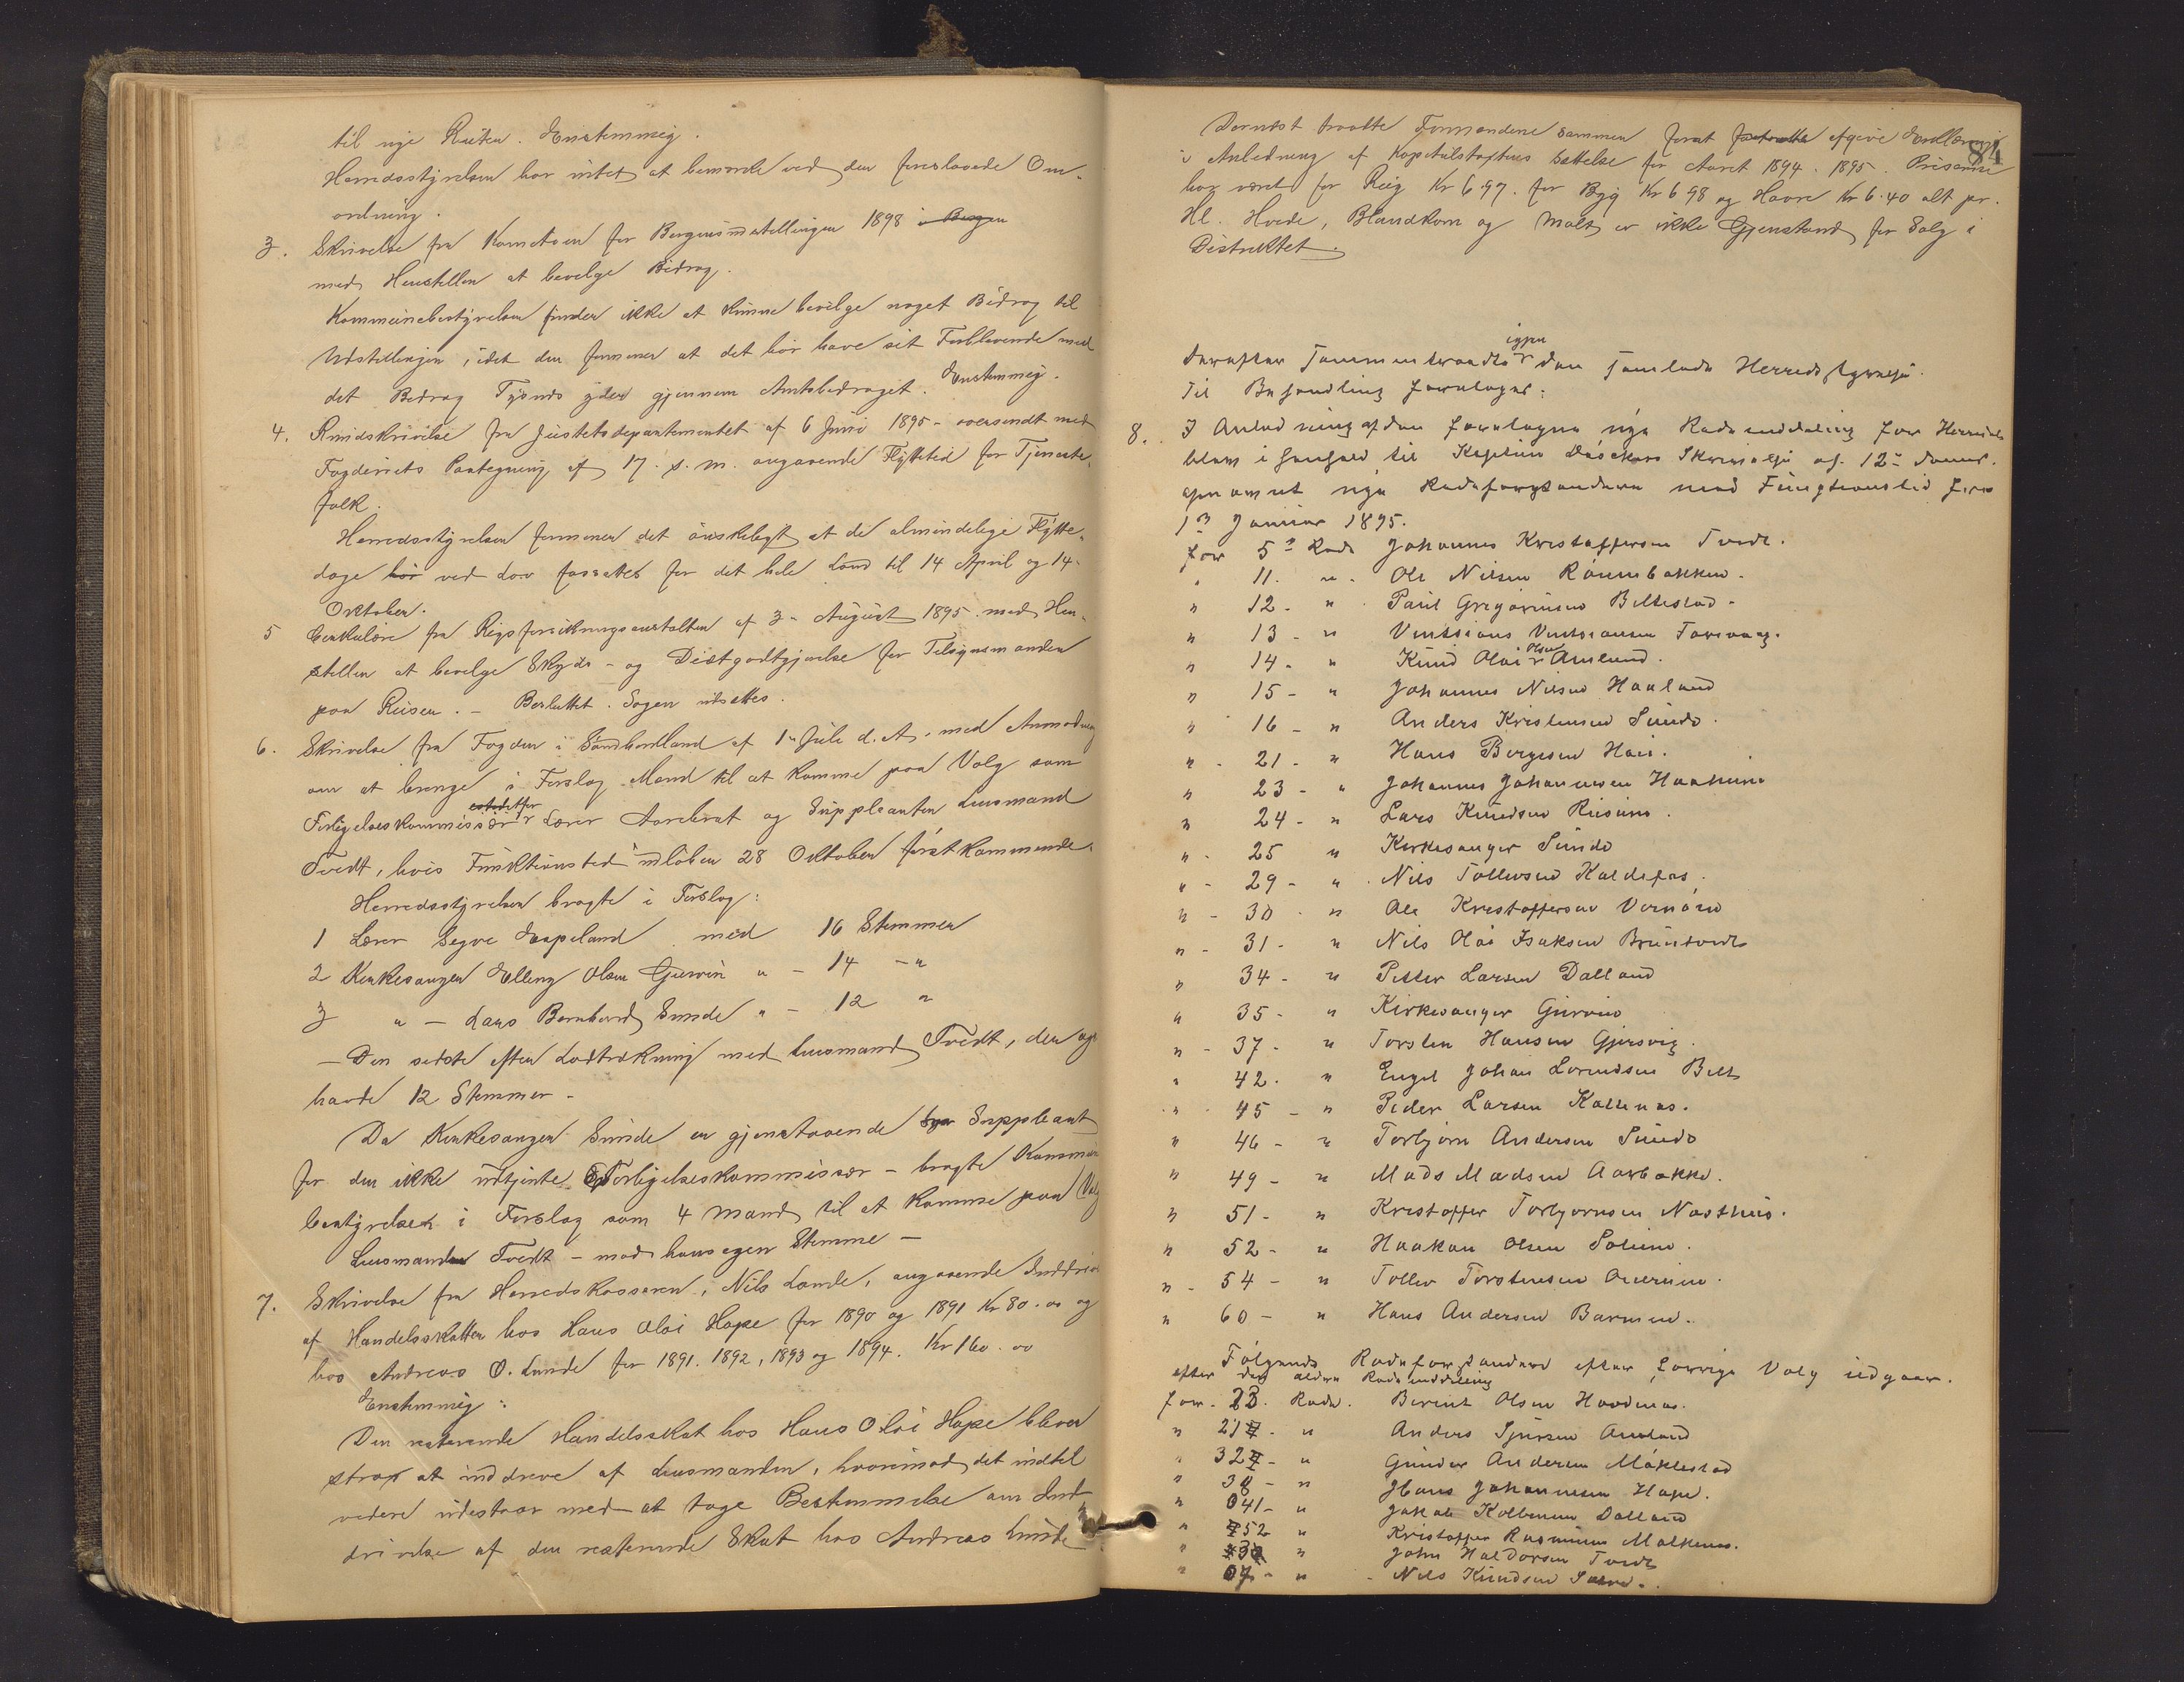 til nye Ruten. Enstemmig.
Herredsstyrelsen har intet at bemærke ved den foreslaaede Om-
ordning.
3. Skrivelse fra Komiteen for Bergensudstillingen 1898 i Bergen
med Henstillen at bevilge Bidrag.
Kommunebestyrelsen finder ikke at kunne bevilge noget Bidrag til
Udstillingen, idet den formener at det bør have sit Forblivende med
det Bidrag Tysnes yder gjennem Amtsbidraget. Enstemmig.
4. Rundskrivelse fra Justitsdepartementet af 6 Juni 1895 - oversendt med
Fogderiets Paategning af 17. s. m. angaaende Flyttetid for Tjeneste-
folk.
Herredsstyrelsen formener det ønskeligt at de almindelige Flytte-
dage bør ved Lov fassættes for det hele Land til 14 April og 14-
Oktober.
5 Cirkulære fra Rigsforsikringsanstalten af 3- August 1895 med Hen-
stillen at bevilge Skyds- og Diætgodtgjørelse for Tilsynsmanden
paa Reisen. - Besluttet. Sagen udsættes.
6. Skrivelse fra Fogden i Søndhordland af 1- Juli d. A. med Anmodning
om at bringe i Forslag Mænd til at komme paa Valg som
Forligelseskommissær istedetfor Lærer Aarebrot og Suppleanten Lensmand
Tvedt, hvis Funktionstid udløber 28 Oktober førstkommende.
Herredsstyrelsen bragte i Forslag:
1 Lærer Segve Espeland med 16 Stemmer
2 Kirkesanger Elling Olsen Gjerven " - 14 - "
3 " - Lars Bernhard Sunde " - 12 "
- Den sidste efter Lodtrækning med Lensmand Tvedt, der og
havde 12 Stemmer -
Da Kirkesanger Sunde er gjenstaaende Suppleant
for den ikke udtjente Forligelseskommissær - bragte Kommune
bestyrelsen i Forslag som 4 Mand til at komme paa Valg
Lensmanden Tvedt - mod hans egen Stemme -
7. Skrivelse fra Herredskasseren, Nils Lande, angaaende Inddrivelse
af Handelsskatten hos Hans Olai Hope for 1890 og 1891 Kr 80.00 og
hos Andreas O. Lunde for 1891. 1892, 1893 og 1894. Kr 160.00
Enstemmig:
Den resterende Handelsskat hos Hans Olai Hope bliver
strax at inddrive af Lensmanden, hvorimod det indtil
videre udestaar med at tage Bestemmelse om Ind-
drivelse af den resterende Skat hos Andreas Lunde
84
Dernæst traadte Formændene sammen forat afgive Erklæring
i Anledning af Kapitelstaxtens Sættelse for Aaret 1894-1895. Priserne
har været for Rug Kr 6.97. for Byg Kr 6.98 og Havre Kr 6.40 alt pr.
Hl. Hvede, Blandkorn og Malt er ikke Gjenstand for Salg i
Distriktet.
Derefter sammentraadte igjen den samlede Herredsstyrelse.
Til Behandling forelagdes:
8. I Anledning af den forelagne nye Rodeinddeling for Herredet
blev i Henhold til Kaptein Skrivelse af 12-
opnævnt nye Rodeforstandere med Fungtionstid fra
1ste Januar 1895.
for 5te Rode Johannes Kristoffersen Tvedt.
" 11. " - Ole Nilsen Rønnebakken.
" 12 - " Paul Gregoriusen Beltestad -
" 13 - " Vintsians Vintsiansen Farevaag.
" 14 - " Knud Olai Olsen Amland.
" 15 - " Johannes Nilsen Haaland
" 16 - " Anders Kristensen Sunde.
" - 21 - " Hans Børgesen Hau.
" 23 - " Johannes Johannesen Haaheim
" 24 - " Lars Knudsen Reisum.
" - 25 " Kirkesanger Sunde
" - 29 - " Nils Tollevsen Kaldefos.
" - 30 - " Ole Kristoffersen Vernøen
" - 31 - " Nils Olai Isaksen Bruntveit
" 34 - " Petter Larsen Dalland
" 35 - " Kirkesanger Gjerven
" - 37 - " Torsten Hansen Gjersvig.
" 42. " Engel Johan Lorentsen Belt
" 45 - " Peder Larsen Kaltenæs.
" 46 - " Torbjørn Andersen Sunde
" 49 - " Mads Madsen Aarbakke.
" 51 - " Kristoffer Torbjørnsen Næsthus.
" 52 - " Haakon Olsen Solem.
" - 54 - " Tollev Torstensen Onereim.
" 60 - " Hans Andersen Barmen.
Følgende Rodeforstandere efter forrige Valg udgaar.
efter den ældre Rodeinddeling
for. 23. Rode. Berent Olsen Hovdenæs.
" 21 - " Anders Sjursen Amland
" 32 - " Gunder Andersen Møklestad
" 38 - " Hans Johannesen Hope.
" 41 - " Jakob Kolbensen Dalland
" 52 " Kristoffer Rasmusen Malkenes.
" 3 " John Haldorsen Tvedt
" 07 - " - Nils Knudsen